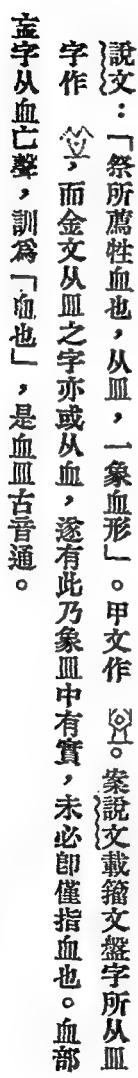 說文：「祭所薦牲血也，从皿，一象血形」。甲文作　。案說文載籀文盤字所从皿
字作　，而金文从皿之字亦或从血，遂有此乃象皿中有實，未必卽僅指血也。血部
衁字从血亡聲，訓爲「血也」，是血皿古音通。